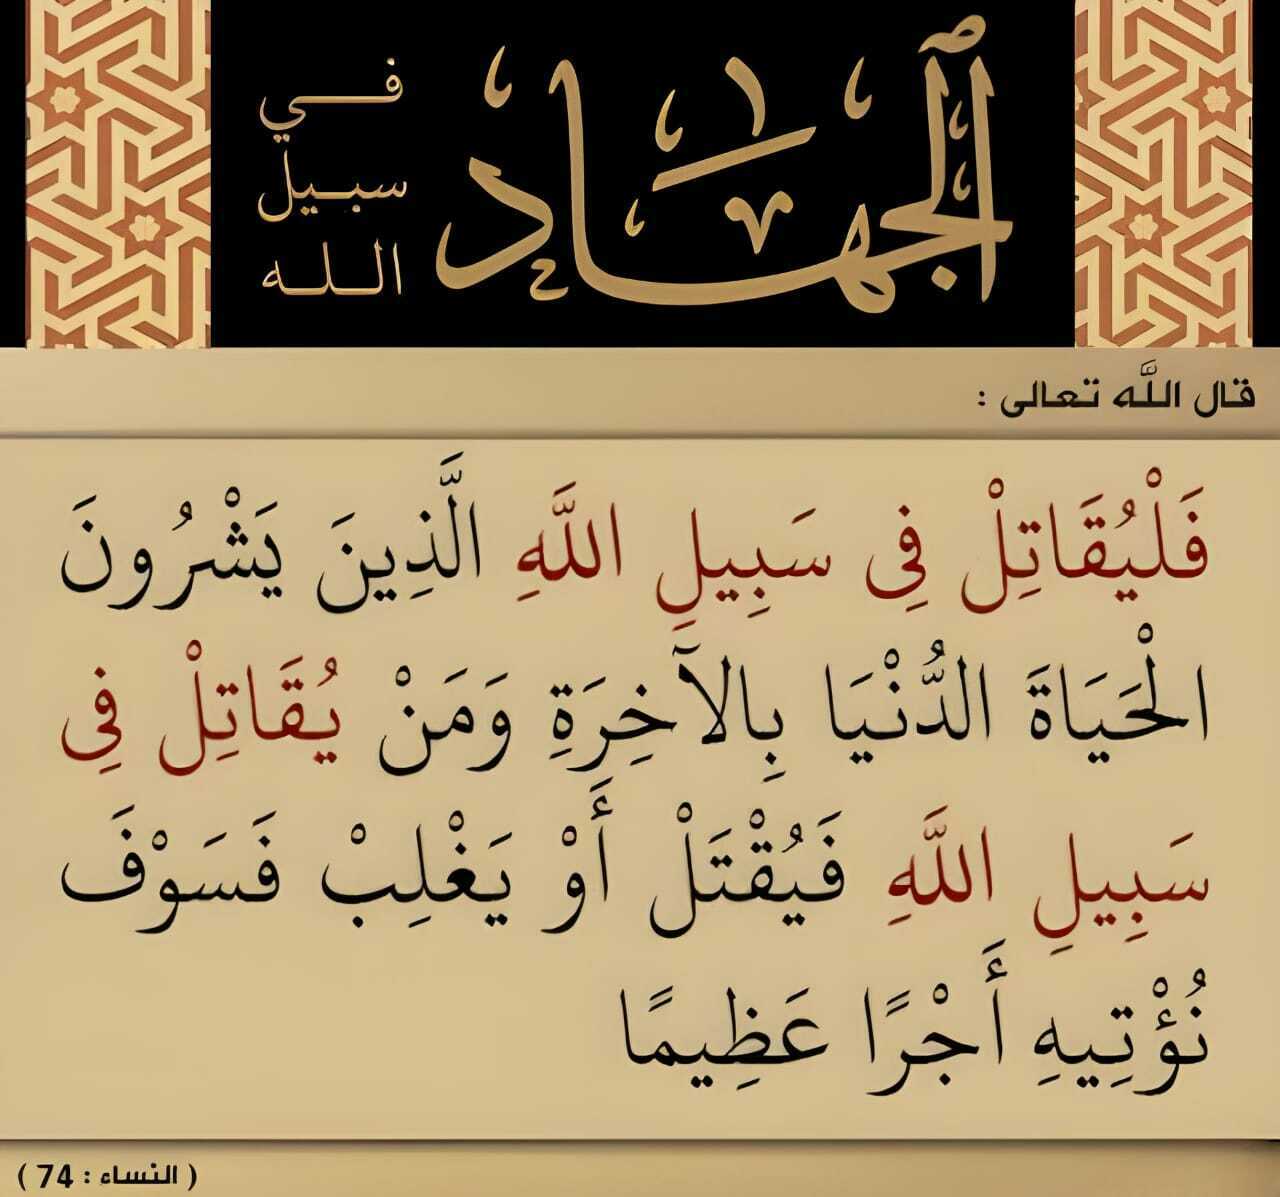 الجهاد
في
سبيل
الله
قال اللَّه تعالى :
فَلْيُقَاتِلْ فِى سَبِيلِ اللَّهِ الَّذِينَ يَشْرُونَ
الْحَيَاةَ الدُّنْيَا بِالآخِرَةِ وَمَنْ يُقَاتِلْ فِى
سَبِيلِ اللَّهِ فَيُقْتَلْ أَوْ يَغْلِبْ فَسَوْفَ
نُؤْتِيهِ أَجْرًا عَظِيمًا
( النساء : 74 )